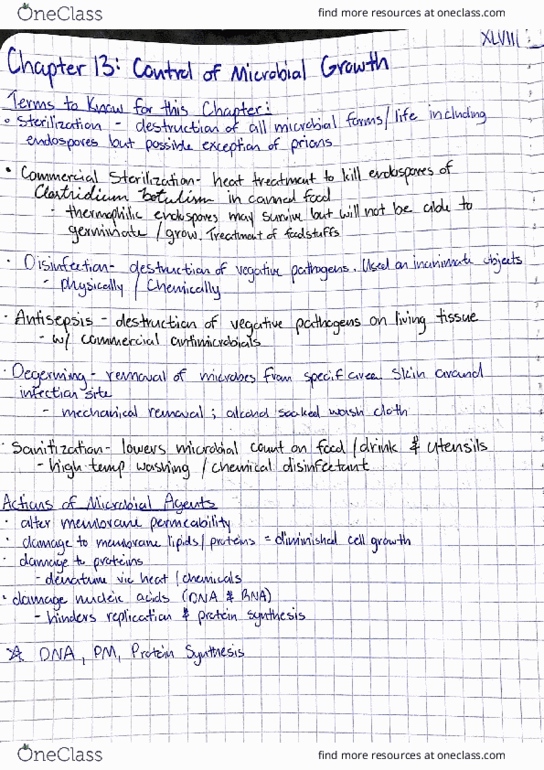 OneClass
find more resources at oneclass.com
XLVIII
Chapter 13: Control of Microbial Growth
Terms to Know for this Chapter:
Sterilization - destruction of all microbial forms/life including
endospores but possible exception of prions
• Commercial Sterilization- heat treatment to kill endospores of
Clostridium botulism in canned food
- thermophilic endospores may survive but will not be able to
germinate/grow. Treatment of foodstuffs
· Disinfection- destruction of vegative pathogens. Used on inanimate objects
- physically / Chemically
· Antisepsis - destruction of vegative pathogens on living tissue
- w/ commercial antimicrobials
· Degerming - removal of microbes from specific area. Skin around
infection site
- mechanical removal; alcohol soaked wash cloth
· Sanitization- lowers microbial count on food/drink & utensils
- high temp washing / chemical disinfectant
Actions of Microbial Agents
· alter membrane permeability
· damage to membrane lipids/proteins = diminished cell growth
· damage to proteins
- denature via heat/chemicals
· damage nucleic acids (DNA & RNA)
- hinders replication & protein synthesis
☆ DNA, PM, Protein Synthesis
OneClass
find more resources at oneclass.com